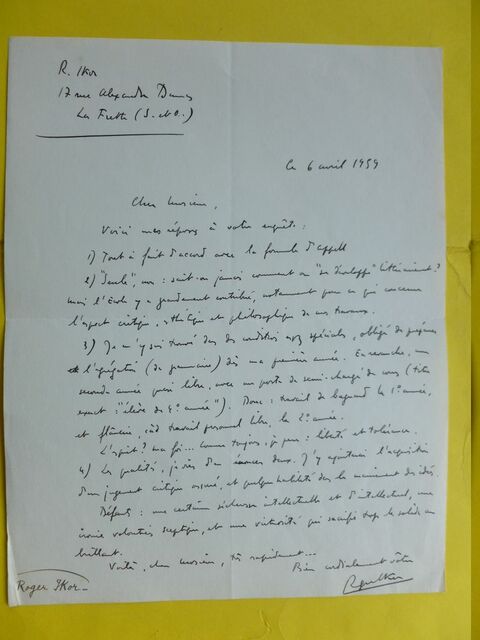 R. Ikor
17 rue Alexandre Dumas
La Frette (S. et O.)
Ce 6 avril 1959
Cher monsieur,
Voici mes réponses à votre enquête :
1) Tout à fait d'accord avec la formule d'appel
2) "Seule", non : sait-on jamais comment on "se développe" littérairement ?
mais l'École y a grandement contribué, notamment pour ce qui concerne
l'aspect critique, esthétique et philosophique de mes travaux.
3) Je m'y suis trouvé dans des conditions assez spéciales, obligé de préparer
l'agrégation (de grammaire) dès ma première année. En revanche, une
seconde année quasi libre, avec un poste de semi-chargé de cours (titre
exact : "élève de 4e année"). Donc : travail de bagnard la 1e année,
et flânerie, càd travail personnel libre, la 2e année.
L'esprit ? ma foi... comme toujours, je pense : liberté et tolérance.
4) Les qualités, je viens d'en énoncer deux. J'y ajouterai l'acquisition
d'un jugement critique assuré, et quelque habileté dans le maniement des idées.
Défauts : une certaine sécheresse intellectuelle et d'intellectuel, une
ironie volontiers sceptique, et une virtuosité qui sacrifie trop le solide au
brillant.
Voilà, cher monsieur, très rapidement...
Bien cordialement vôtre
Roger Ikor
Roger Ikor